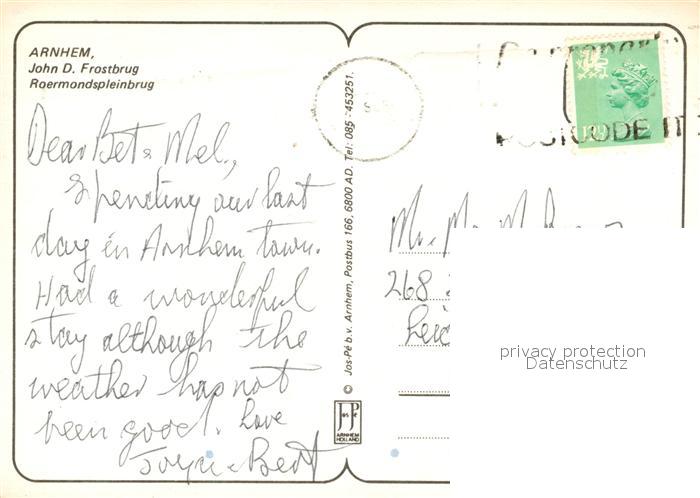 ARNHEM,
John D. Frostbrug
Roermondspleinbrug
Dear Bet & Mel,
Spending our last
day in Arnhem town.
Had a wonderful
stay although the
weather has not
been good. Love
Bert
© Jos-Pé b.v. Arnhem, Postbus 166, 6800 AD. Tel: 085-453251.
Jos Pé
ARNHEM
HOLLAND
POSTCODE IT
Mr. M
268
Leic
privacy protection
Datenschutz